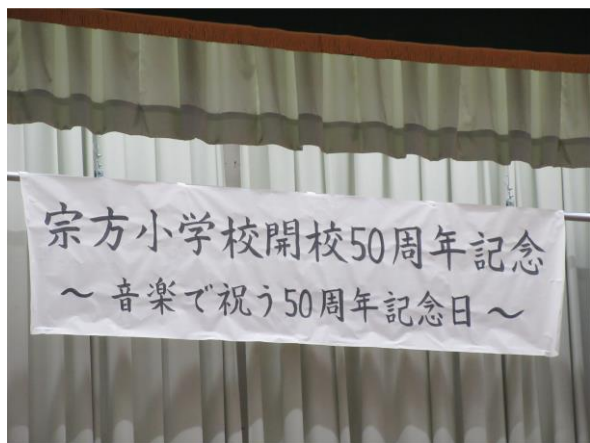 宗方小学校開校50周年記念
～ 音楽で祝う50周年記念日 ～